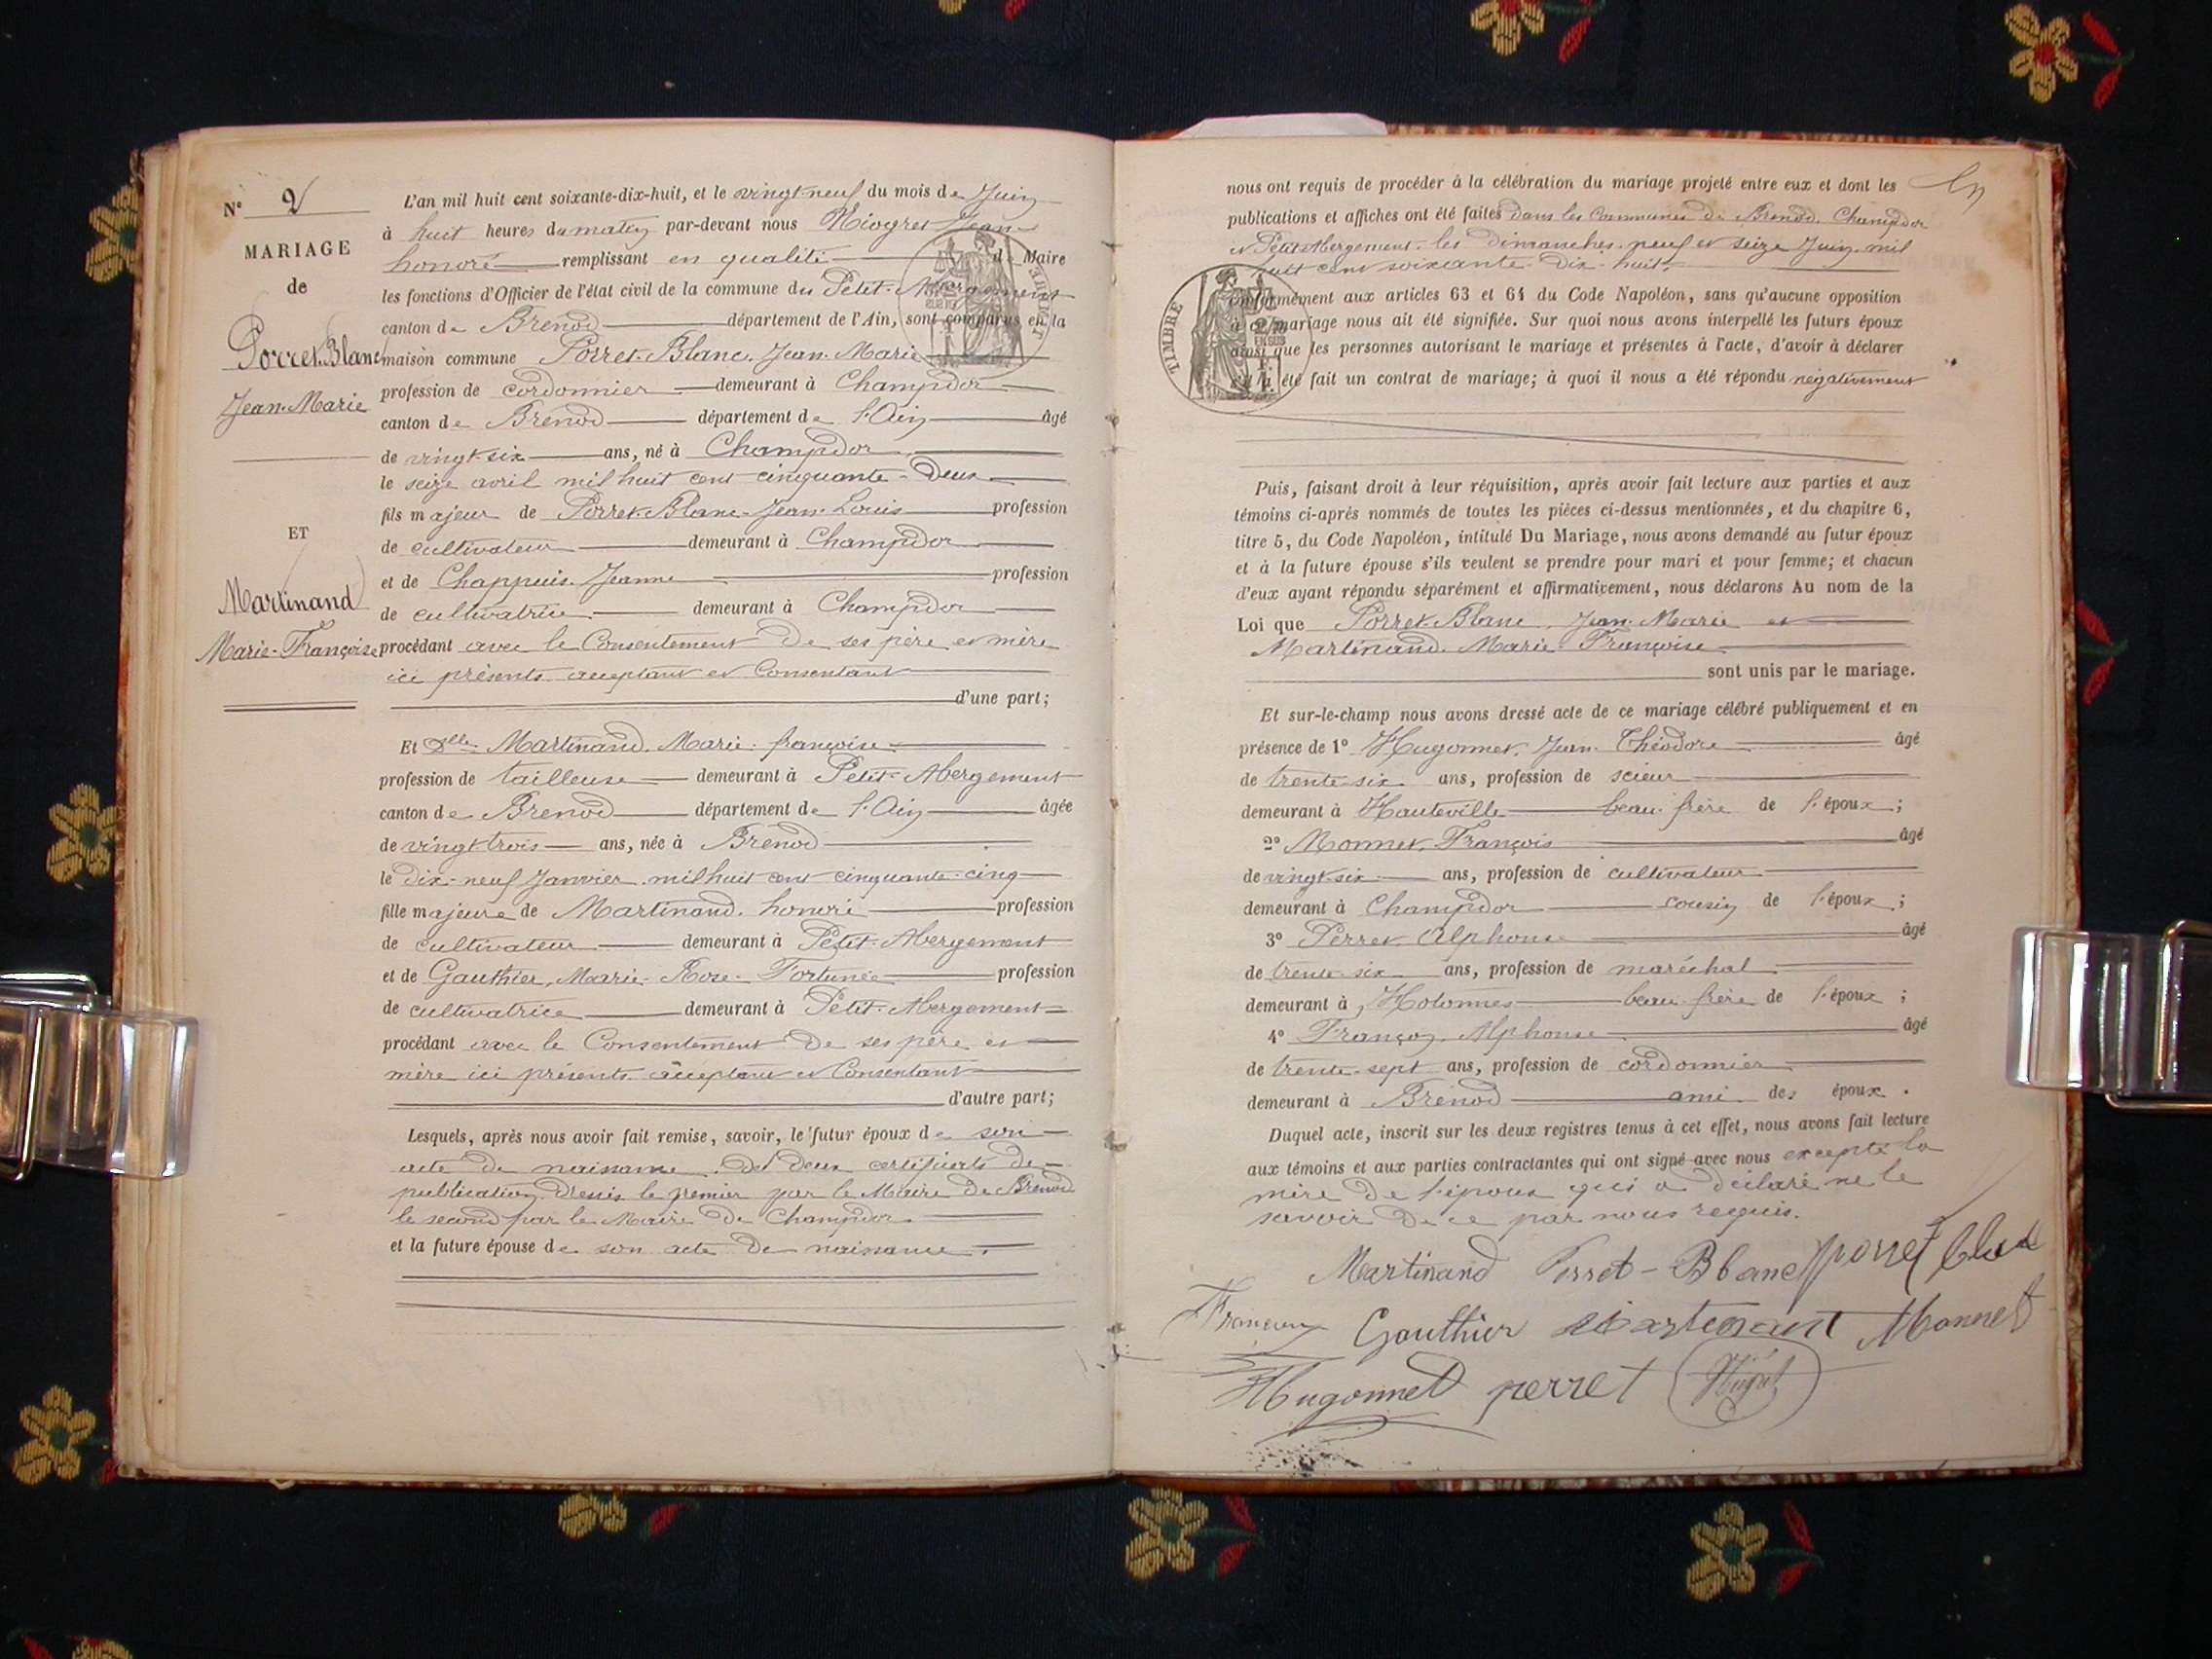 N° 2
MARIAGE
de
Porret-Blanc
Jean-Marie
ET
Martinand
Marie-Françoise
L'an mil huit cent soixante-dix-huit, et le vingt-neuf du mois de Juin
à huit heures du matin par-devant nous Jean
honoré remplissant en qualité de Maire
les fonctions d'Officier de l'état civil de la commune du Petit-Abergement
canton de Brenod département de l'Ain, sont comparus en la
maison commune Porret-Blanc, Jean-Marie
profession de cordonnier demeurant à Champdor
canton de Brenod département de l'Ain âgé
de vingt-six ans, né à Champdor
le seize avril mil huit cent cinquante-Deux
fils majeur de Porret-Blanc-Jean-Louis profession
de cultivateur demeurant à Champdor
et de Chappuis-Jeanne profession
de cultivatrice demeurant à Champdor
procédant avec le Consentement De ses père et mère
ici présents acceptant et Consentant
d'une part;
Et Dlle Martinand. Marie-françoise
profession de tailleuse demeurant à Petit-Abergement
canton de Brenod département de l'Ain âgée
de vingt trois ans, née à Brenod
le Dix-neuf Janvier mil huit cent cinquante-cinq
fille majeure de Martinand. honoré profession
de cultivateur demeurant à Petit-Abergement
et de Gauthier, Marie-Rose-Fortunée profession
de cultivatrice demeurant à Petit-Abergement
procédant avec le Consentement De ses père et
mère ici présents acceptant et Consentant
d'autre part;
Lesquels, après nous avoir fait remise, savoir, le futur époux de son
acte de naissance. Des Deux certificats de
publication Dressés le premier par le Maire De Brenod
le second par le Maire De Champdor
et la future épouse de son acte de naissance.
nous ont requis de procéder à la célébration du mariage projeté entre eux et dont les
publications et affiches ont été faites dans les Communes de Brenod, Champdor
et Petit-Abergement les Dimanches neuf et seize Juin mil
huit cent soixante-Dix-huit.
TIMBRE
conformément aux articles 63 et 64 du Code Napoléon, sans qu'aucune opposition
à ce mariage nous ait été signifiée. Sur quoi nous avons interpellé les futurs époux
ainsi que les personnes autorisant le mariage et présentes à l'acte, d'avoir à déclarer
s'il a été fait un contrat de mariage; à quoi il nous a été répondu négativement
Puis, faisant droit à leur réquisition, après avoir fait lecture aux parties et aux
témoins ci-après nommés de toutes les pièces ci-dessus mentionnées, et du chapitre 6,
titre 5, du Code Napoléon, intitulé Du Mariage, nous avons demandé au futur époux
et à la future épouse s'ils veulent se prendre pour mari et pour femme; et chacun
d'eux ayant répondu séparément et affirmativement, nous déclarons Au nom de la
Loi que Porret-Blanc, Jean-Marie et
Martinand. Marie-Françoise
sont unis par le mariage.
Et sur-le-champ nous avons dressé acte de ce mariage célébré publiquement et en
présence de 1° Hugonnet, Jean-Théodore âgé
de trente-six ans, profession de scieur
demeurant à Hauteville beau-frère de l'époux;
2° Monnet, François âgé
de vingt-six ans, profession de cultivateur
demeurant à Champdor cousin de l'époux;
3° Perret Alphonse âgé
de trente-six ans, profession de maréchal
demeurant à Hotonnes beau-frère de l'époux;
4° Françon, Alphonse âgé
de trente-sept ans, profession de cordonnier
demeurant à Brénod ami des époux.
Duquel acte, inscrit sur les deux registres tenus à cet effet, nous avons fait lecture
aux témoins et aux parties contractantes qui ont signé avec nous excepté la
mère De l'époux qui a déclaré ne le
savoir De ce par nous requis.
Martinand Porret-Blanc porret blanc
Françon Gauthier Martinant Monnet
Hugonnet perret